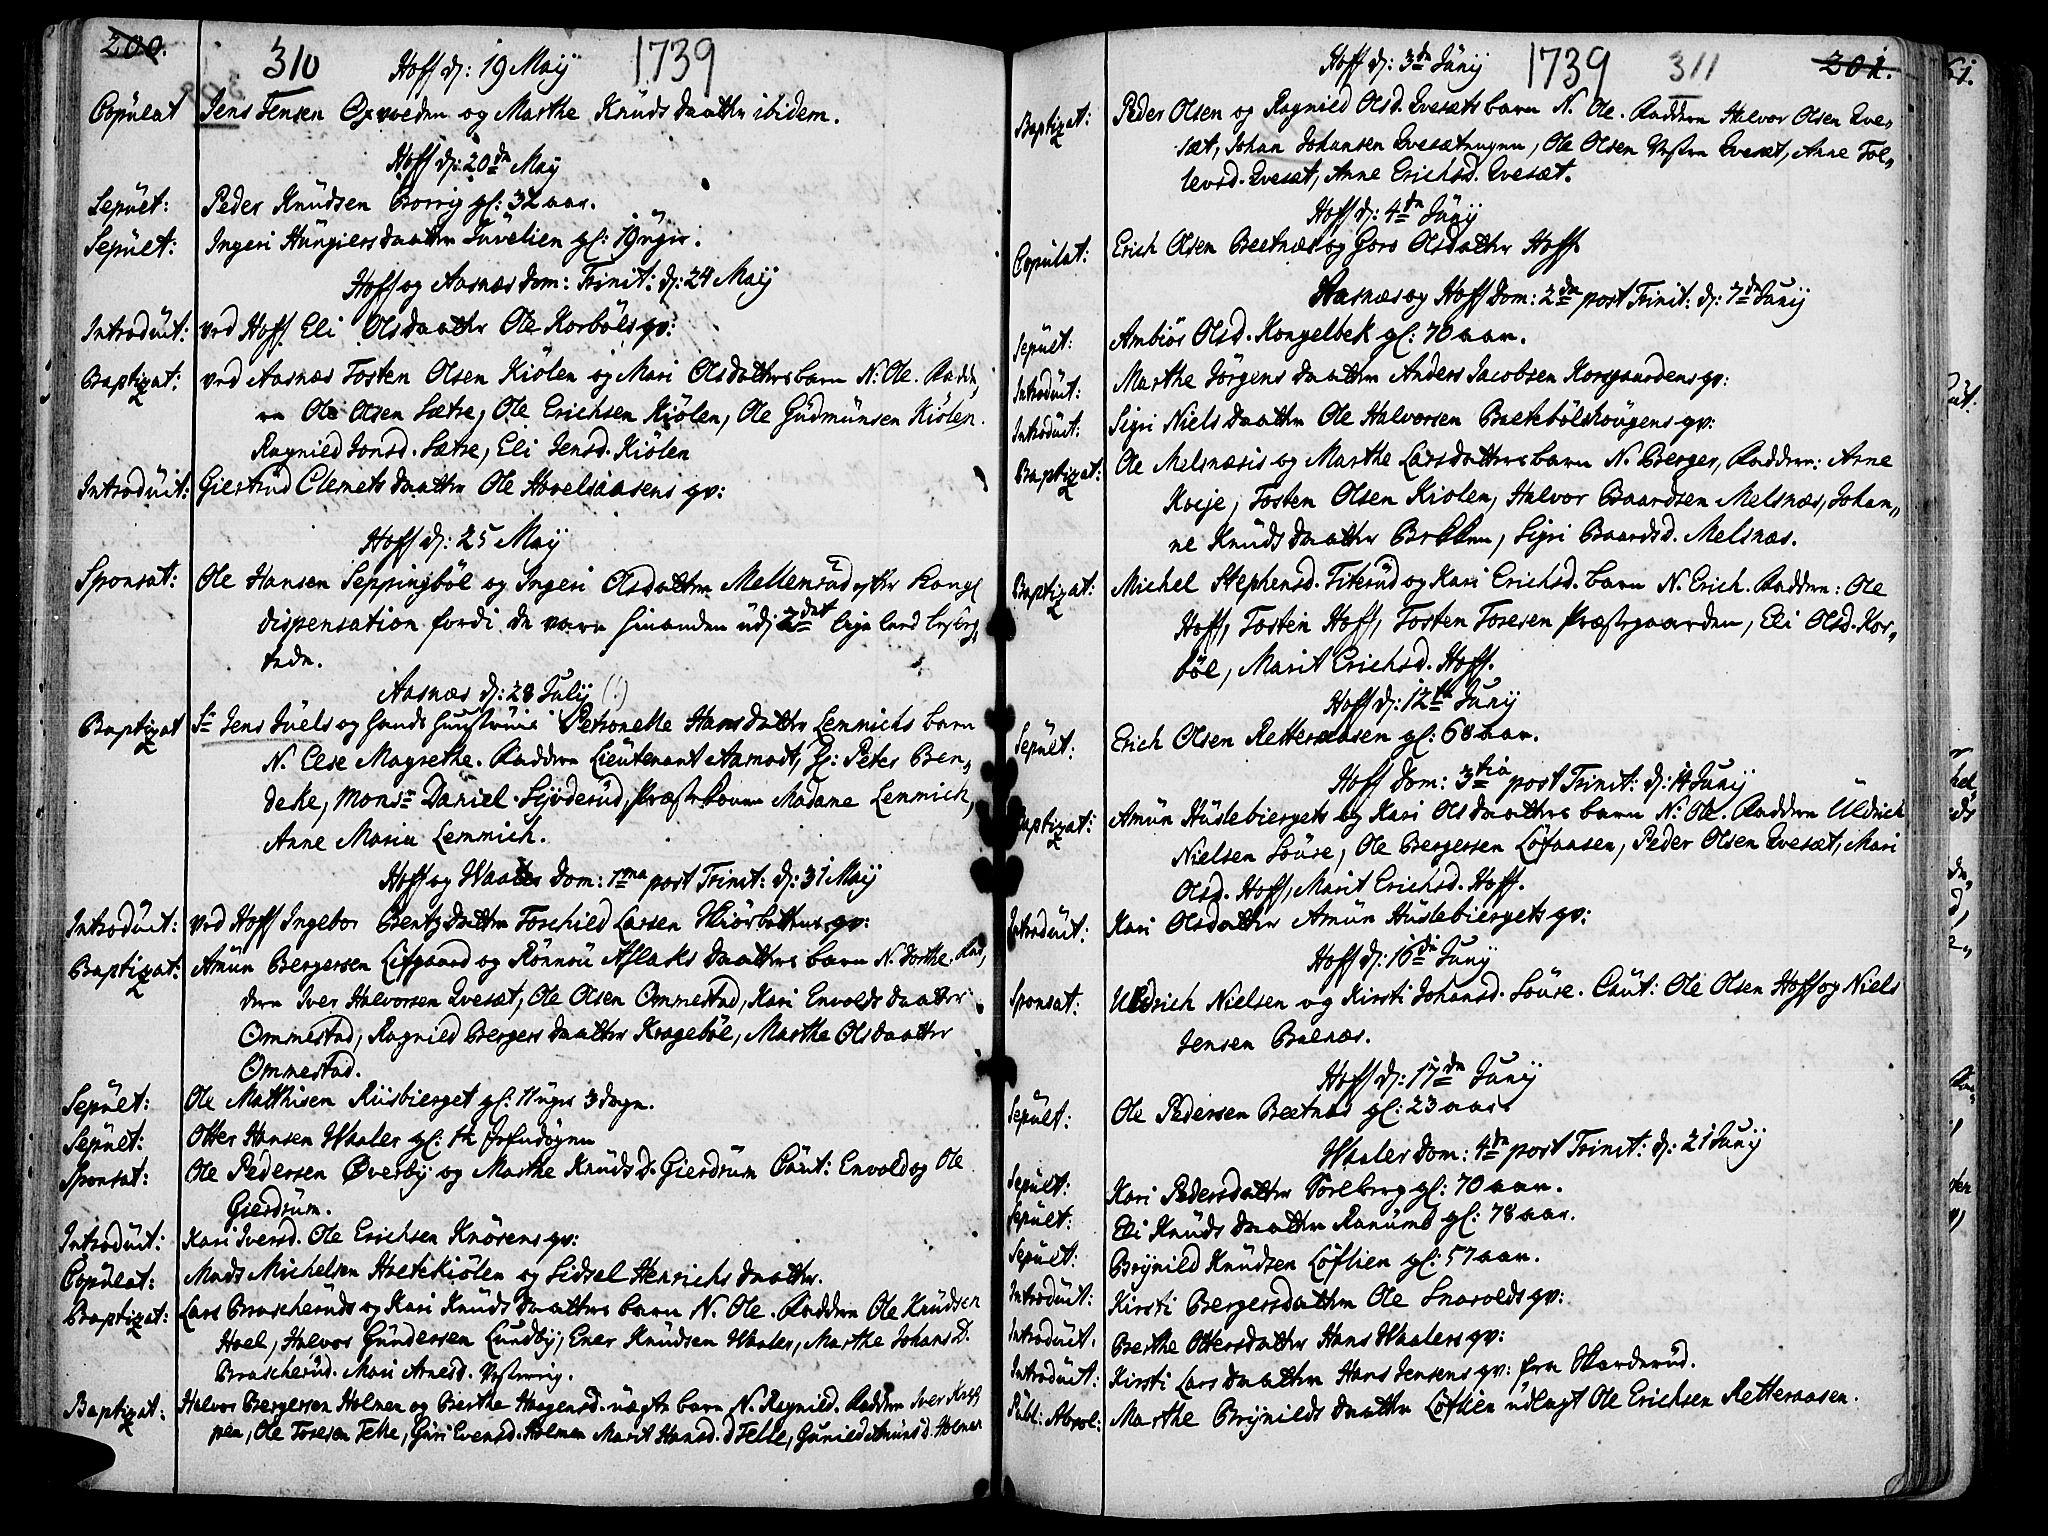 200.
310
1739
Hoff d: 19 Maij
Copulat Jens Jensen Oxvoeden og Marthe Knüds daatter ibidem.
Hoff d: 20de Maij
Sepult: Peder Knüdsen Borrig gl: 32 aar.
Sepult: Ingeri Hüngiersdaatter Juvelien gl: 19 uger.
Hoff og Aasnæs Dom: Trinit: d: 24 Maij
Introduit: ved Hoff Eli Olsdaatter Ole Korböls qv:
Baptizat: ved Aasnæs Tosten Olsen Kiölen og Mari Olsdatters barn N. Ole. Fadde,,
re Ole Olsen Sætre, Ole Erichsen Kiölen, Ole Güdmünsen Kiölen.
Ragnild Jonsd. Sætre, Eli Jensd. Kiölen
Introduit: Giertrud Clemets daatter Ole Hovelsaasens qv:
Hoff d: 25 Maij
Sponsat: Ole Hansen Seppingböl og Ingeri Olsdatter Mellemrüd efter Kongl
dispensation fordi de vare hinanden udj 2det lige leed besleg,,
tede.
Aasnæs d: 28 Julij (!)
Baptizat Sr Jens Juels og hands hustrües Petronelle Hansdatter Lemmichs barn
N. Else Magrethe. Faddere Lieutenant Aamodt, Hr: Peter Ben,,
deke, Monsr Daniel Siöderud, Præstekonen Madame Lemmich,
Anne Maria Lemmich.
Hoff og Waaler Dom: 1ma post Trinit: d: 31 Maij
Introduit: ved Hoff Ingebor Bentzdatter Torchild Larsen Skiörbettens qv:
Baptizat: Amün Bergersen Löfgaard og Rönnou Aslaksdaatters barn N. Dorthe. Fad,
dere Iver Halvorsen Qvesæt, Ole Olsen Ommestad, Kari Envolds daatter
Ommestad, Ragnild Bergers daatter Krageböl, Marthe Olsdaatter
Ommestad.
Sepult: Ole Matthisen Riisbierget gl: 11 uger 3 dage.
Sepult: Otter Hansen Waaler gl:
Sponsat: Ole Pedersen Överbÿ og Marthe Knüds D. Gierdrum Caut: Envold og Ole
Gierdrum.
Introduit: Kari Iversd. Ole Erichsen Knösens qv:
Copulat: Mads Michelsen Hoetekiölen og Sidsel Henrichs daatter.
Baptizat: Lars Brascherüds og Kari Knüds daatters barn N. Ole. Faddere Ole Knüdsen
Hoel, Halvor Gündersen Lundby, Ener Knüdsen Waaler, Marthe Johans D.
Brascherüd. Mari Arnesd. Vesterrig.
Baptizat: Halvor Bergersen Holmen og Berthe Haagensd. uægte barn N. Ragnild. Faddere Iver Knap
pen, Ole Toresen Felle, Güri Evensd. Holmen Marit Hansd. Felle, Gunild Amünsd. Holmen
201.
1739
311
Hoff d: 3de Junij
Baptizat: Peder Olsen og Ragnild Olsd. Qvesæts barn N. Ole. Faddere Halvor Olsen Qve,,
sæt, Johan Johansen Qvesæteugen, Ole Olsen Vestre Qvesæt, Anne Tol,,
levsd. Qvesæt, Anne Erichsd. Qvesæt.
Hoff d: 4de Junij
Copulat: Erich Olsen Beetnæs og Goro Olsdatter Hoff.
Aasnæs og Hoff Dom: 2da post Trinit: d: 7de Junij
Sepult: Ambiör Olsd. Kongelbek gl: 70 aar.
Introduit: Marthe Jörgens daatter Anders Jacobsen Korsgaardens qv:
Introduit: Sigri Niels daatter Ole Halvorsen Baeteböls hougens qv:
Baptizat: Ole Melsnæsis og Marthe Larsdatters barn N. Berger, Faddere: Arne
Koeje, Tosten Olsen Kiolen, Halvor Baardsen Melsnæs, Johan,,
ne Knüds daatter Bekken, Sigri Baardsd. Melsnæs.
Baptizat: Michel Stephensd. Titerüd og Kari Erichsd. barn N. Erich. Faddere: Ole
Hoff, Tosten Hoff, Tosten Toresen Præstegaarden, Eli Olsd. Kor,,
böl, Marit Erichsd. Hoff.
Hoff d: 12te Junij
Sepult: Erich Olsen Retteraasen gl: 68 aar.
Hoff Dom: 3tia post Trinit: d: 14 Junij
Baptizat: Amün Hüslebiergets og Kari Olsdaatters barn N. Ole. Faddere Uldrich
Nielsen Soüre, Ole Bergersen Löfaasen, Peder Olsen Qvesæt, Mari
Olsd. Hoff, Marit Erichsd. Hoff.
Introduit: Kari Olsdatter Amün Hüslebiergets qv:
Hoff d: 16de Junij
Sponsat: Uldrich Nielsen og Kirsti Johansd. Soüre. Caut: Ole Olsen Hoff og Niels
Jensen Balnæs.
Hoff d: 17de Junij
Sepult: Ole Pedersen Beetnæs gl: 23 aar.
Waaler Dom: 4de post Trinit: d: 21 Junij
Sepult: Kari Pedersdatter Torlberg gl: 70 aar.
Sepult: Eli Knüds daatter Ranumb gl: 78 aar.
Sepult: Brÿnild Knüdsen Löflien gl: 57 aar.
Introduit: Kirsti Bergersdatter Ole Snarolds qv:
Introduit. Berthe Ottersdatter Hans Waalers qv:
Introduit: Kirsti Lars daatter Hans Jensens qv: fra Skarderud.
Publ: Absol: Marthe Brÿnilds daatter Löflien üdlagt Ole Erichsen Retteraasen.